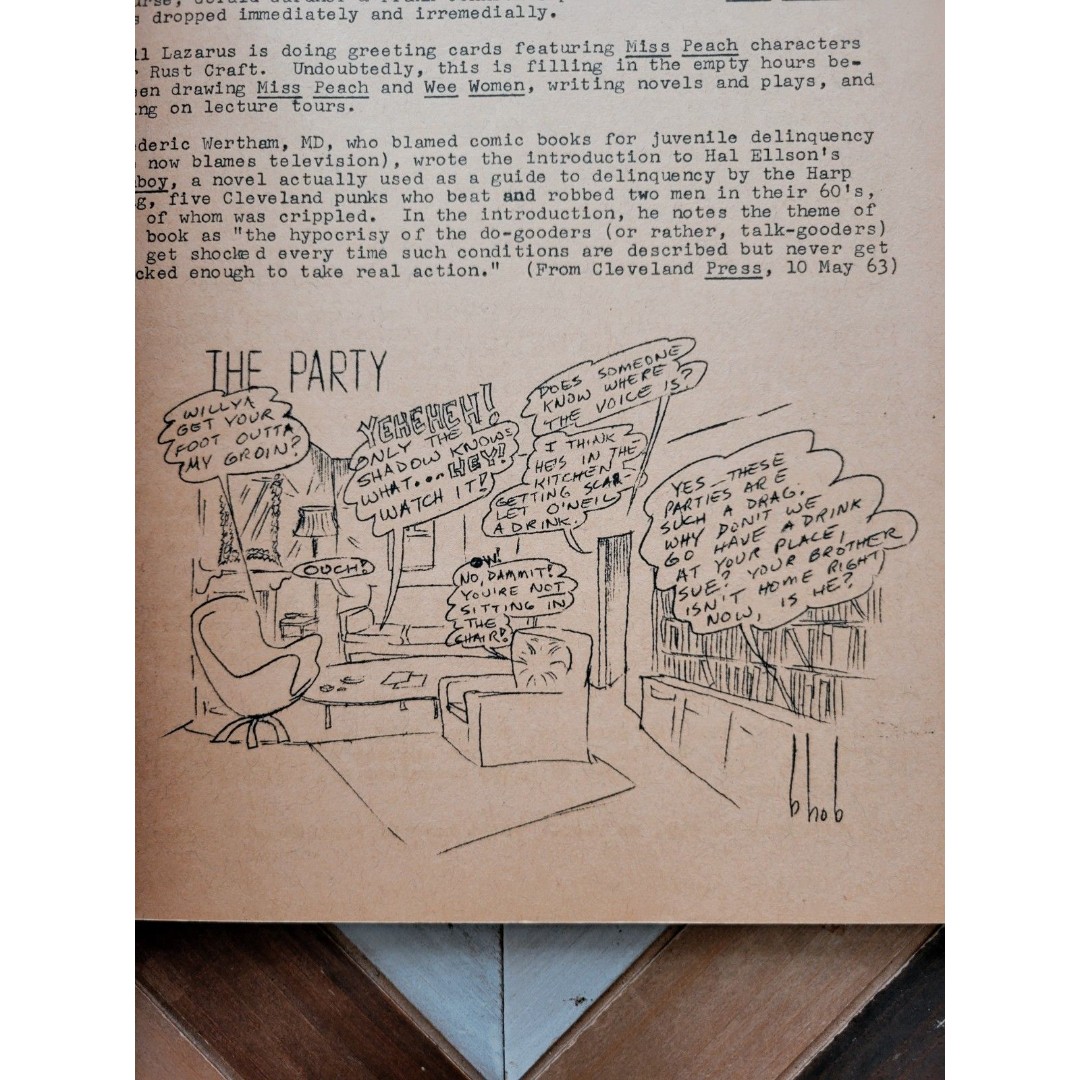 s dropped immediately and irremedially.
ll Lazarus is doing greeting cards featuring Miss Peach characters
r Rust Craft. Undoubtedly, this is filling in the empty hours be-
en drawing Miss Peach and Wee Women, writing novels and plays, and
ng on lecture tours.
deric Wertham, MD, who blamed comic books for juvenile delinquency
now blames television), wrote the introduction to Hal Ellson's
boy, a novel actually used as a guide to delinquency by the Harp
g, five Cleveland punks who beat and robbed two men in their 60's,
of whom was crippled. In the introduction, he notes the theme of
book as "the hypocrisy of the do-gooders (or rather, talk-gooders)
get shocke d every time such conditions are described but never get
cked enough to take real action." (From Cleveland Press, 10 May 63)
THE PARTY
WILLYA
GET YOUR
FOOT OUTTA
MY GROIN?
YEHEHEH!
ONLY THE
SHADOW KNOWS
WHAT... HEY!
WATCH IT!
DOES SOMEONE
KNOW WHERE
THE VOICE IS?
I THINK
HE'S IN THE
KITCHEN
GETTING SCAR-
LET O'NEIL
A DRINK.
OUCH!
OW!
NO, DAMMIT!
YOU'RE NOT
SITTING IN
THE
CHAIR!
YES—THESE
PARTIES ARE
SUCH A DRAG.
WHY DON'T WE
GO HAVE A DRINK
AT YOUR PLACE,
SUE? YOUR BROTHER
ISN'T HOME RIGHT
NOW, IS HE?
bhob